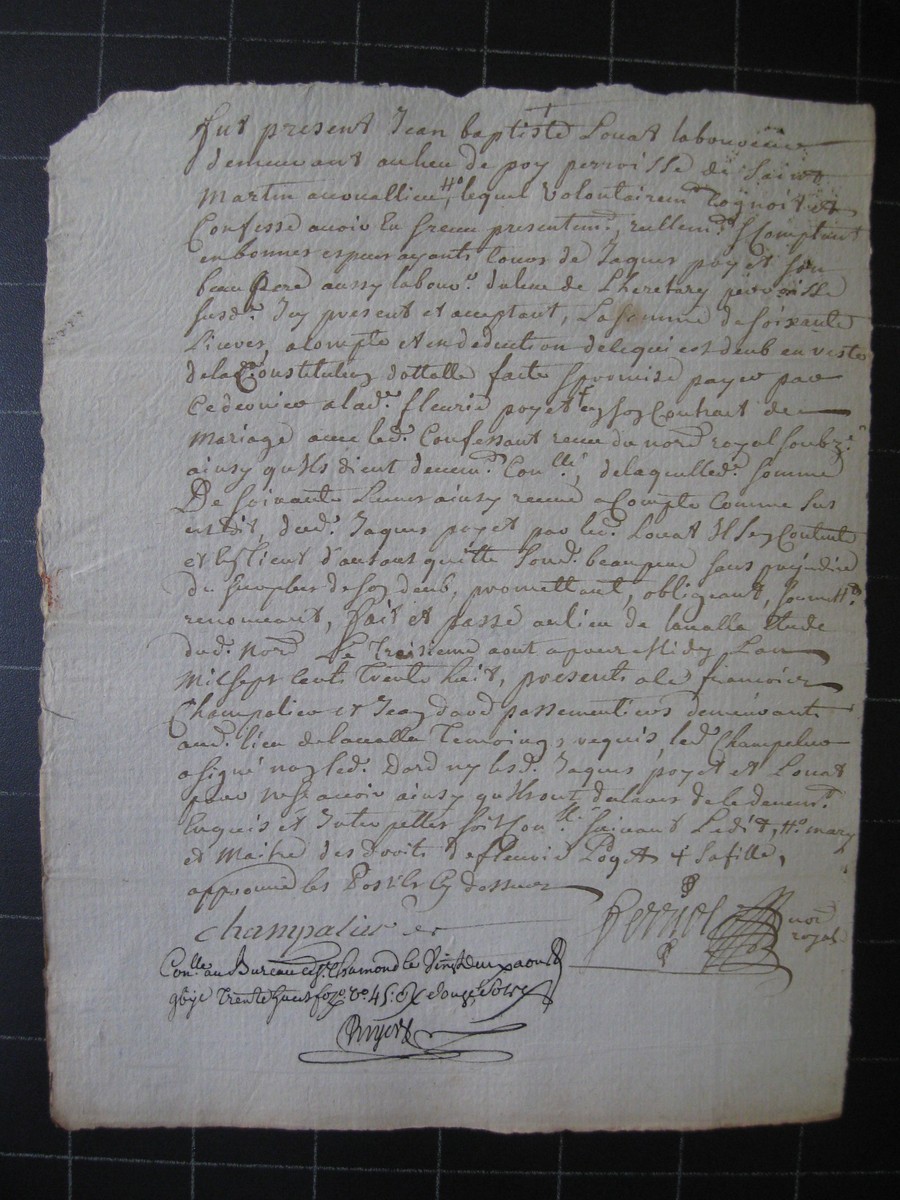 fut present Jean baptiste Louat laboureur
demeurant au lieu de poy perroisse de Saint
Martin acouallieu, #o lequel volontairemt Cognoit et
Confesse avoir Eu et Receu presentemt, reellemt, & Comptant
en bonnes especes ayants cours de Jaques poyet son
beau pere aussy labourr du lieu de Lheretary perroisse
susde. Icy present et acceptant, La somme de soixante
Livres, acompte et en deduction de ce qui est deub en reste
de la Constitution dottalle faite & promise payer par
Ce dernier a lade. fleurie poyet + en son Contrat de
Mariage avec led. Confessant receu du nore royal soubzne
ainsy qu'ils dient deuemt Conlle, de laquelle de. somme
De soixante Livres ainsy receue a Compte comme sus
est dit, dud. Jaques poyet par led. Louat Il s'en Contente
et tient d'autant quitte sond. beaupere sans prejudice
du surplus de son deub, promettant, obligeant, soumettt.
renonceant, fait et passé au lieu de lavalla Etude
dud. Nore Le Troisieme aout apres Midy L'an
Mil sept Cents Trente huit, presents a ce francois
Champalier et Jean dard passementiers demeurants
aud. lieu de lavalla Temoings requis, led. Champalier
a signé non led. Dard ny lesd. Jaques poyet et Louat
pour ne scavoir ainsy qu'ils ont declares de le deuemt.
Enquis et Interpelles soit Conlle. suivant L'edit, #o mary
et Maitre des droits de fleurie Poyet + sa fille,
approuvé les Postiles Cy dessus
champalier
Perriol nore
royal
Conlle au Bureau de St. Chamond le vingt deux aoust
gbije Trente huit fo. vo 45: Rx douze sols
Ruyer